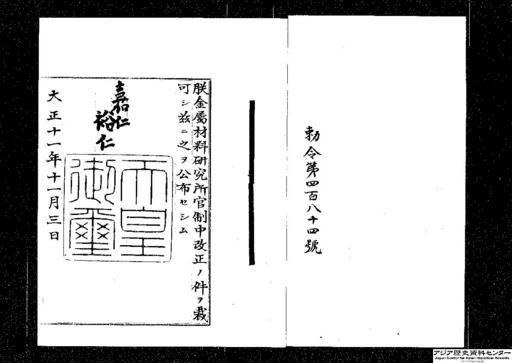 勅令第四百八十四號
朕金屬材料研究所官制中改正ノ件ヲ裁
可シ茲ニ之ヲ公布セシム
嘉仁
裕仁
天皇
御璽
大正十一年十一月三日
アジア歴史資料センター
Japan Center for Asian Historical Records